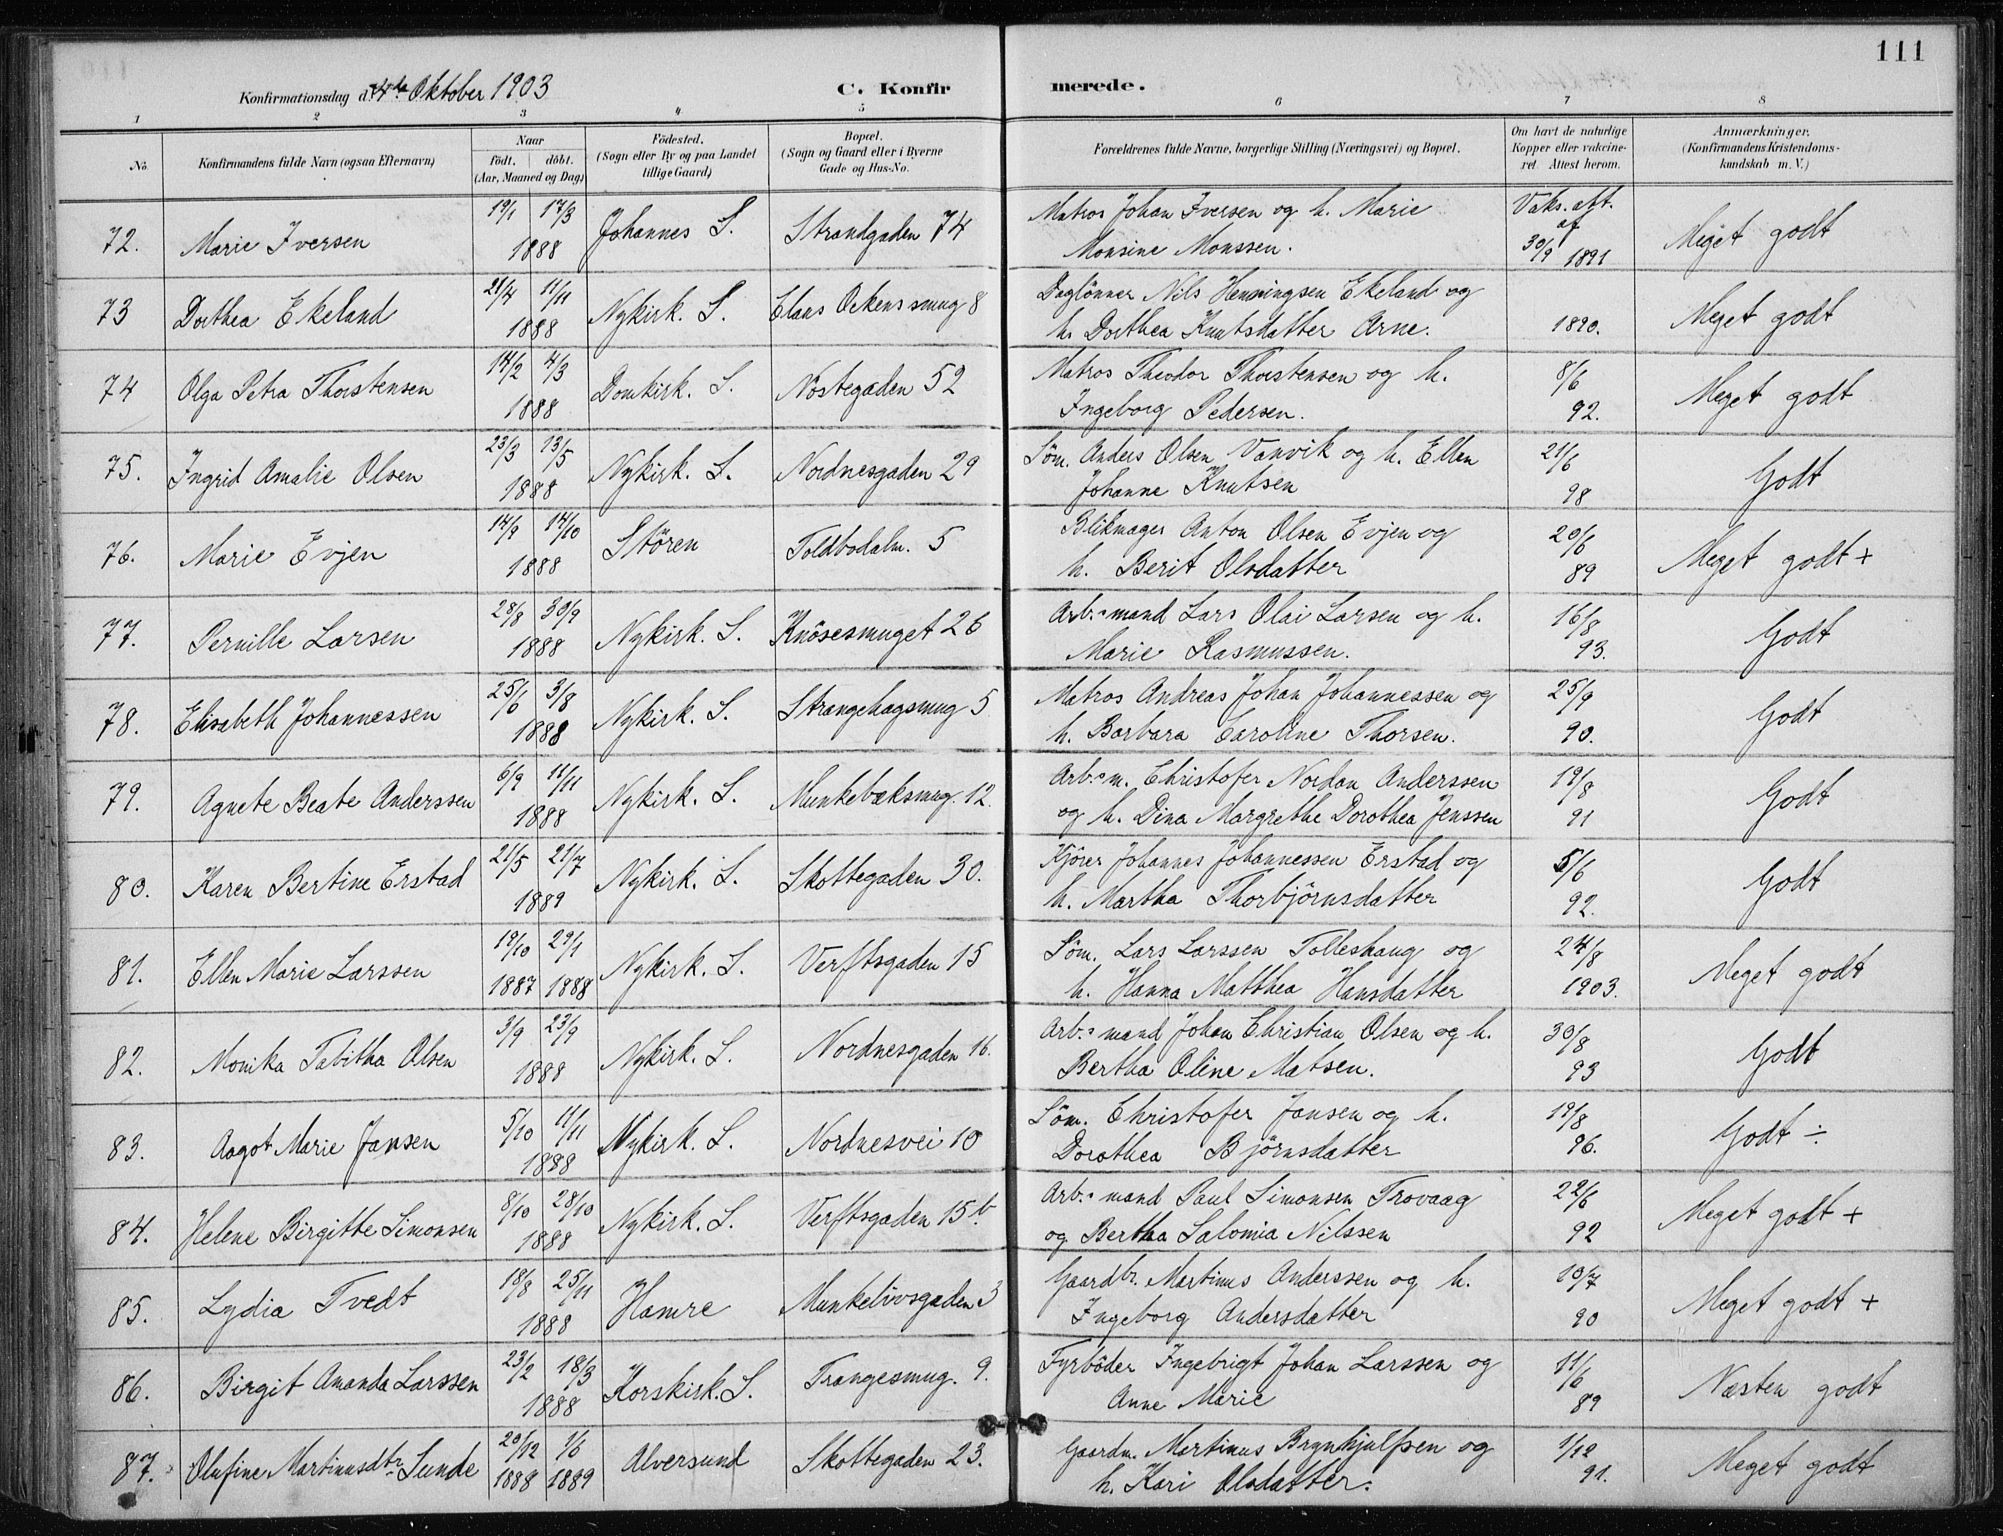 111
Konfirmationsdag d. 4de Oktober 1903 C. Konfir merede.
1 2 3 4 5 6 7 8
No. Konfirmandens fulde Navn (ogsaa Efternavn) Naar födt. döbt. (Aar, Maaned og Dag) Födested. (Sogn eller By og paa Landet tillige Gaard) Bopæl. (Sogn og Gaard eller i Byerne Gade og Hus-No. Forældrenes fulde Navne, borgerlige Stilling (Næringsvei) og Bopæl. Om havt de naturlige Kopper eller vakcineret. Attest herom. Anmærkninger. (Konfirmandens Kristendomskundskab m. V.)
72. Marie Iversen 19/1 17/3 1888 Johannes S. Strandgaden 74 Matros Johan Iversen og h. Marie Vaks. att. af
Monsine Monssen. 30/9 1891 Meget godt
73 Dorthea Ekeland 21/4 11/11 1888 Nykirk. S. Claus Ockenssmug 8 Daglönner Nils Henningsen Ekeland og
h. Dorthea Knutsdatter Arne. 1890. Meget godt
74 Olga Petra Thorstensen 14/2 4/3 1888 Domkirk. S. Nöstegaden 52 Matros Theodor Thorstensen og h.
Ingeborg Pedersen. 8/6 92. Meget godt
75. Ingrid Amalie Olsen 23/3 13/5 1888 Nykirk. S. Nordnesgaden 29 Söm. Anders Olsen Vanvik og h. Ellen
Johanne Knutsen 21/6 98 Godt
76. Marie Evjen 14/9 14/10 1888 Stören Toldbodalm. 5 Blikmager Anton Olsen Evjen og
h. Berit Olsdatter 20/6 89 Meget godt +
77. Pernille Larsen 28/8 30/9 1888 Nykirk. S. Knösesmuget 26 Arb.s mand Lars Olai Larsen og h.
Marie Rasmussen. 16/8 93. Godt
78. Elisabeth Johannessen 25/6 3/8 1888 Nykirk. S. Strangehagsmug 5 Matros Andreas Johan Johannessen og
h. Barbara Caroline Thorsen. 25/9 90. Godt
79. Agnete Beate Anderssen 6/9 11/11 1888 Nykirk. S. Munkebæksmug. 12. Arb.s m. Christofer Nordan Anderssen
og h. Dina Margrethe Dorothea Jenssen 19/8 91 Godt
80. Karen Bertine Erstad 21/5 21/7 1889 Nykirk. S. Skottegaden 30. Kjörer Johannes Johannessen Erstad og
h. Martha Thorbjörnsdatter 5/6 92. Godt
81. Ellen Marie Larssen 19/10 1887 29/1 1888 Nykirk. S. Verftsgaden 15 Söm. Lars Larssen Tolleshaug og
h. Hanna Matthea Hansdatter 24/8 1903. Meget godt
82. Monika Tabitha Olsen 3/9 23/9 1888 Nykirk. S. Nordnesgaden 16. Arb.s mand Johan Christian Olsen og h.
Bertha Oline Matsen. 30/8 93 Godt
83. Aagot Marie Jansen 5/10 11/11 1888 Nykirk. S. Nordnesvei 10 Söm. Christofer Jansen og h.
Dorothea Björnsdatter 19/8 96. Godt ÷
84. Helene Birgitte Simonsen 8/10 28/10 1888 Nykirk. S. Verftsgaden 15 b. Arb.s mand Paul Simonsen Trovaag
og Bertha Salomia Nilssen 22/6 92 Meget godt +
85. Lydia Tvedt 18/8 25/11 1888 Hamre Munkelivsgaden 3 Gaardbr. Martinus Anderssen og h.
Ingeborg Andersdatter 10/7 90 Meget godt +
86. Birgit Amanda Larssen 23/2 18/3 1888 Korskirk. S. Trangesmug. 9. Fyrböder Ingebrigt Johan Larssen og
Anne Marie 11/6 89 Næsten godt
87. Olufine Martinusdtr. Sunde 20/12 1888 1/6 1889 Alversund Skottegaden 23. Gaardm. Martinus Brynhjulfsen og
h. Kari Olsdatter. 1/12 91. Meget godt